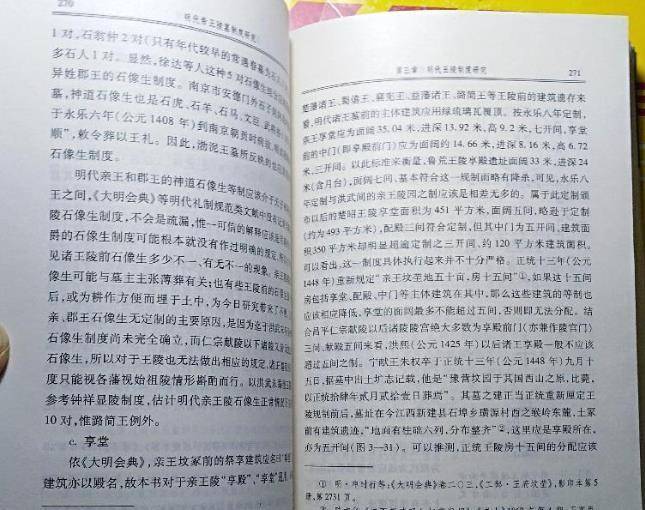 270
明代帝王陵墓制度研究
1对,石翁仲2对(只有年代较早的常遇春墓为
多石人1对。显然,徐达等人这种5对石像生
异姓郡王的石像生制度。南京市安德门外
墓,神道石像生也是石虎、石羊、石马、文臣、武
于永乐六年(公元1408年)到南京朝贡时病故,
顺”,敕令葬以王礼。因此,渤泥王墓所反映的
石像生制度。
明代亲王和郡王的神道石像生等制应该介于
王之间,《大明会典》等明代礼制规范类文献中没有
陵石像生制度,不会是疏漏,惟一可信的解释应该是
爵的石像生制度可能根本就没有作过明确的规定,
见诸王陵前石像生多少不一、有无不一的现象。
像生可能与墓主主张薄葬有关;也有些王陵前的石
后,或为耕作方便而埋于土中,为今日研究带来了不
亲、郡王石像生无定制的主要原因,是因为迄于洪武
像生制度尚未完全确立,而仁宗献陵以下诸陵又
石像生,所以对于王陵也无法做出相应的规定,诸
度只能视各藩视始祖陵情形斟酌而行。以洪武永
参考钟祥显陵制度,估计明代亲王陵石像生正常情
10对,惟潞简王例外。
c. 享堂
依《大明会典》,亲王坟冢前的祭享建筑应名曰“享
建筑亦以殿名,故本书对于亲王陵“享殿”、“享堂”
第三章 明代王陵制度研究
271
楚藩诸王、蜀僖王、襄宪王、益藩诸王、潞简王等王陵前的建筑遗存来
看,明代诸王墓前的主体建筑应用绿琉璃瓦覆顶。按永乐八年定制,
亲王享堂应为面阔35.04米,进深13.92米,高9.2米,七开间,享堂
的中门(即享殿前门)应为面阔约14.66米,进深8.16米,高6.72
米,三开间。以此标准来衡量,鲁荒王陵享殿遗址面阔33米,进深24
米(含月台),面阔七间,基本符合这一规制而略有降杀,可见,永乐八
年定制与洪武间的亲王陵园之制应该是相差无多的。属于此定制颁
布以后的楚昭王陵享堂面积为451平方米,面阔五间,略逊于定制
(约为493平方米),配殿三间符合定制,但其中门为五开间,建筑面
积350平方米却明显超逾定制之三开间、约120平方米建筑面积。
可以看出,这一制度具体执行起来并不十分严格。正统十三年(公元
1448年)重新规定“亲王坟茔地五十亩,房十五间”①,如果这十五间
房包括享堂、配殿、中门等主体建筑在其中,那么这些建筑的等制也
应该相应降低,享堂的面阔最多不能超过五间,否则即无法分配。结
合昌平仁宗献陵以后诸陵陵宫绝大多数为享殿前门(亦兼作陵宫门)
三间、献殿五间来看,洪熙(公元1425年)以后诸王享殿一般不应该
超过五间之制。宁献王朱权卒于正统十三年(公元1448年)九月十
五日,据墓中出土圹志记载,他是“豫营坟园于其国西山之原,比薨,
以正统拾肆年贰月贰拾壹日葬焉”。其墓之建正当正统重新厘定王
陵规制前后,墓址在今江西新建县石埠乡璜源村西之缑岭东麓,土冢
前有建筑遗迹,“地面有柱础六列,分布整齐”②,这里应是享殿所在,
亦为五开间(图3—31)。可以推测,正统王陵房十五间的分配应该
① 明·申时行等:《大明会典》卷二〇三,《工部·王府坟茔》,影印本第5
册,第2731页。